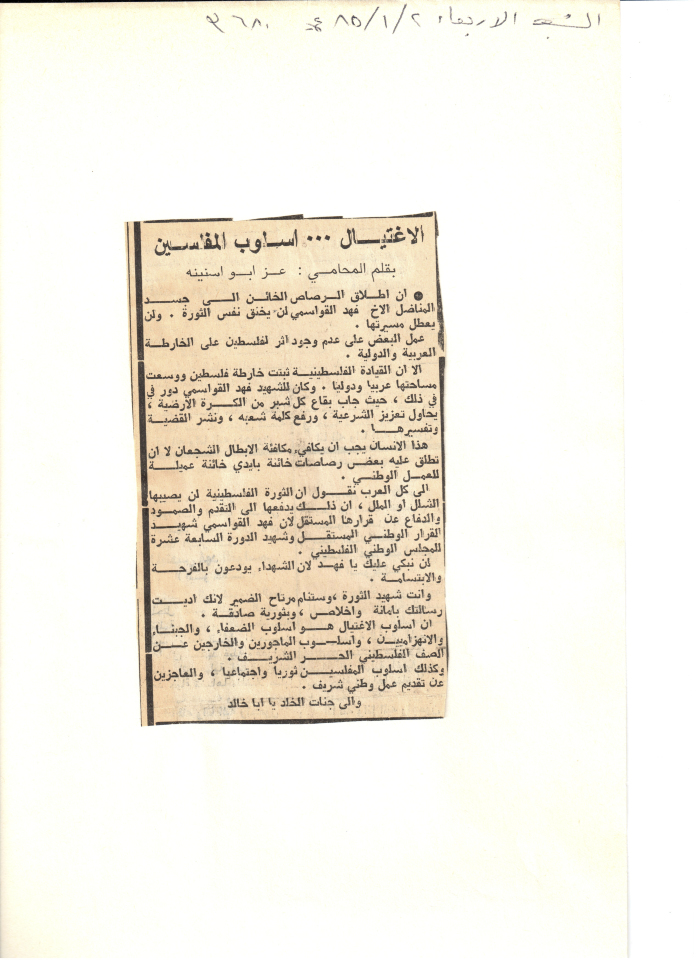 الشعب الاربعاء ٨٥/١/٢ ٣٦٨٠
الاغتيال ... اسلوب المفلسين
بقلم المحامي : عز ابو اسنينه
● ان اطلاق الرصاص الخائن الى جسد
المناضل الاخ فهد القواسمي لن يخنق نفس الثورة . ولن
يعطل مسيرتها .
عمل البعض على عدم وجود اثر لفلسطين على الخارطة
العربية والدولية .
الا ان القيادة الفلسطينية ثبتت خارطة فلسطين ووسعت
مساحتها عربيا ودوليا . وكان للشهيد فهد القواسمي دور في
في ذلك ، حيث جاب بقاع كل شبر من الكرة الارضية ،
يحاول تعزيز الشرعية ، ورفع كلمة شعبه ، ونشر القضية
وتفسيرها .
هذا الانسان يجب ان يكافيء مكافئة الابطال الشجعان لا ان
تطلق عليه بعض رصاصات خائنة بايدي خائنة عميلة
للعمل الوطني .
الى كل العرب نقول ان الثورة الفلسطينية لن يصيبها
الشلل او الملل ، ان ذلك يدفعها الى التقدم والصمود
والدفاع عن قرارها المستقل لان فهد القواسمي شهيد
القرار الوطني المستقل وشهيد الدورة السابعة عشرة
للمجلس الوطني الفلسطيني .
لن نبكي عليك يا فهد لان الشهداء يودعون بالفرحة
والابتسامة .
وانت شهيد الثورة ، وستنام مرتاح الضمير لانك اديت
رسالتك بامانة واخلاص ، وبثورية صادقة .
ان اسلوب الاغتيال هو اسلوب الضعفاء ، والجبناء
والانهزاميين ، واسلوب الماجورين والخارجين عن
الصف الفلسطيني الحر الشريف .
وكذلك اسلوب المفلسين ثوريا واجتماعيا ، والعاجزين
عن تقديم عمل وطني شريف .
والى جنات الخلد يا ابا خالد